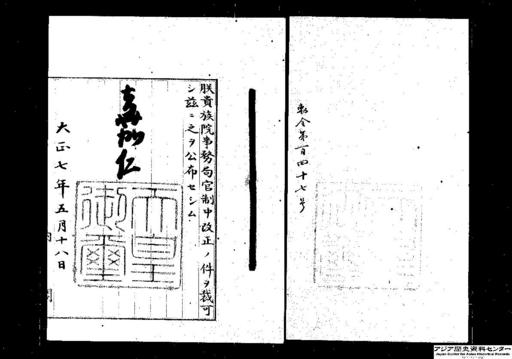 勅令第百四十七号
朕貴族院事務局官制中改正ノ件ヲ裁可
シ茲ニ之ヲ公布セシム
嘉仁
天皇御璽
大正七年五月十八日
アジア歴史資料センター
Japan Center for Asian Historical Records